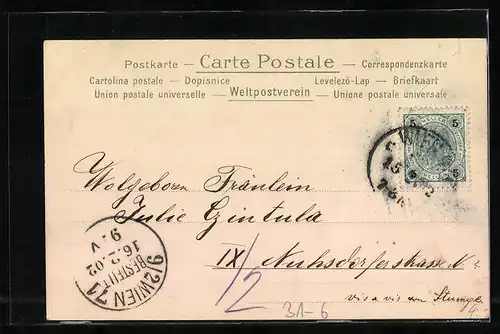 Postkarte — Carte Postale — Correspondenzkarte
Cartolina postale — Dopisnice Levelező-Lap — Briefkaart
Union postale universelle — Weltpostverein — Unione postale universale
5 5
WIEN
15
Wolgeboren Fräulein
Julie Czintula
IX Nuhsdorferstrasse N
vis a vis von
1/2
31-6
9/2 WIEN 71
BESTELLT
16.2.02
9.V